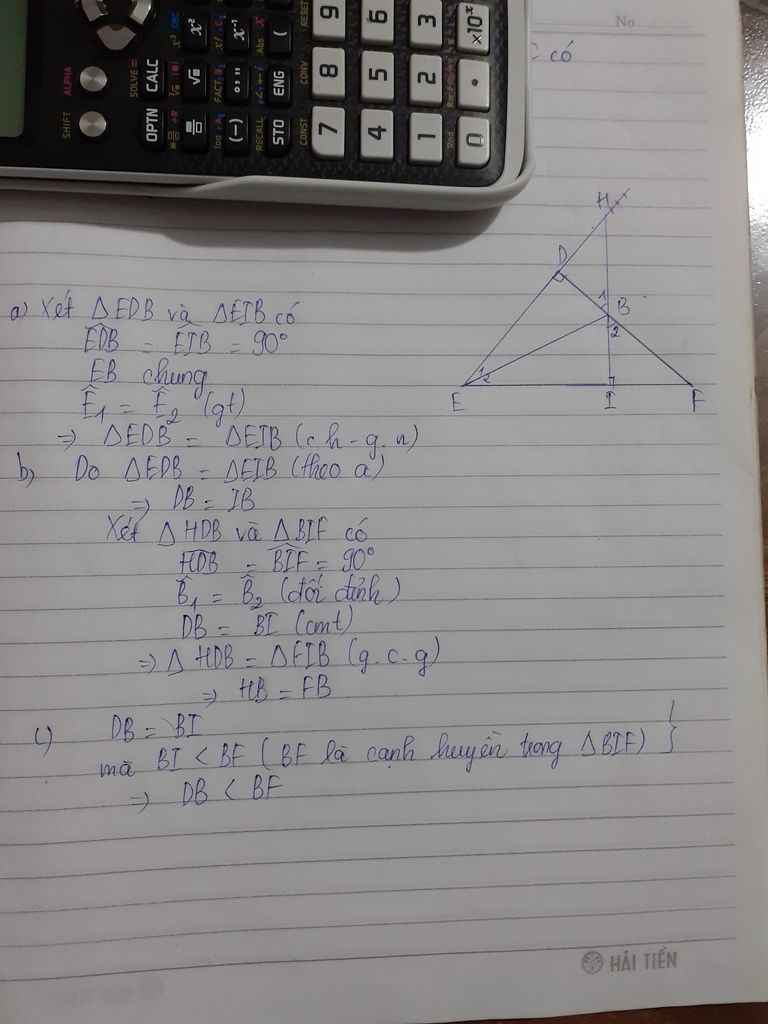 No
có
SHIFT ALPHA
SOLVE =
OPTN CALC
x² x⁻¹
(−) °,,, (
STO ENG
RECALL
CONST CONV RESET
7 8 9
4 5 6
1 2 3
0 . ×10ˣ
H
D
1 B
2
1 2
E I F
a) Xét ΔEDB và ΔEIB có
EDB = EIB = 90°
EB chung
Ê₁ = Ê₂ (gt)
⇒ ΔEDB = ΔEIB (c.h-g.n)
b) Do ΔEDB = ΔEIB (theo a)
⇒ DB = IB
Xét ΔHDB và ΔBIF có
HDB = BIF = 90°
B̂₁ = B̂₂ (đối đỉnh)
DB = BI (cmt)
⇒ Δ HDB = ΔFIB (g.c.g)
⇒ HB = FB
c) DB = BI
mà BI < BF (BF là cạnh huyền trong ΔBIF) }
⇒ DB < BF
HẢI TIẾN